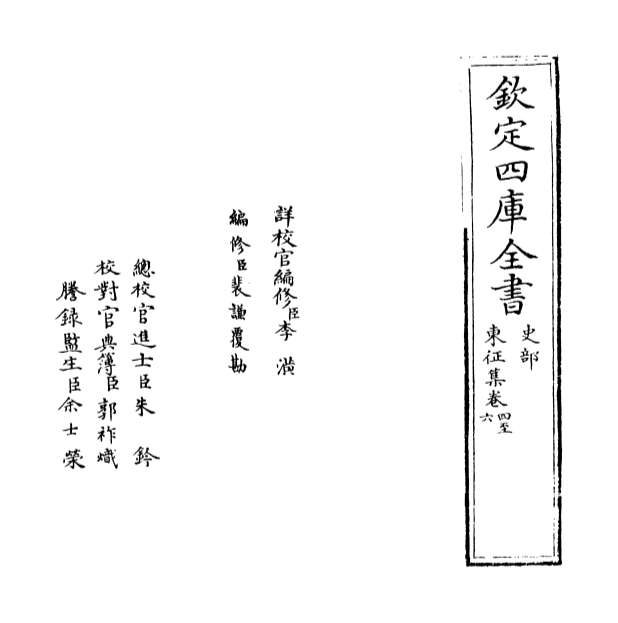 欽定四庫全書
史部
東征集卷四至六
詳校官編修臣李潢
編修臣裴謙覆勘
總校官進士臣朱鈐
校對官典簿臣郭祚熾
謄録監生臣余士榮